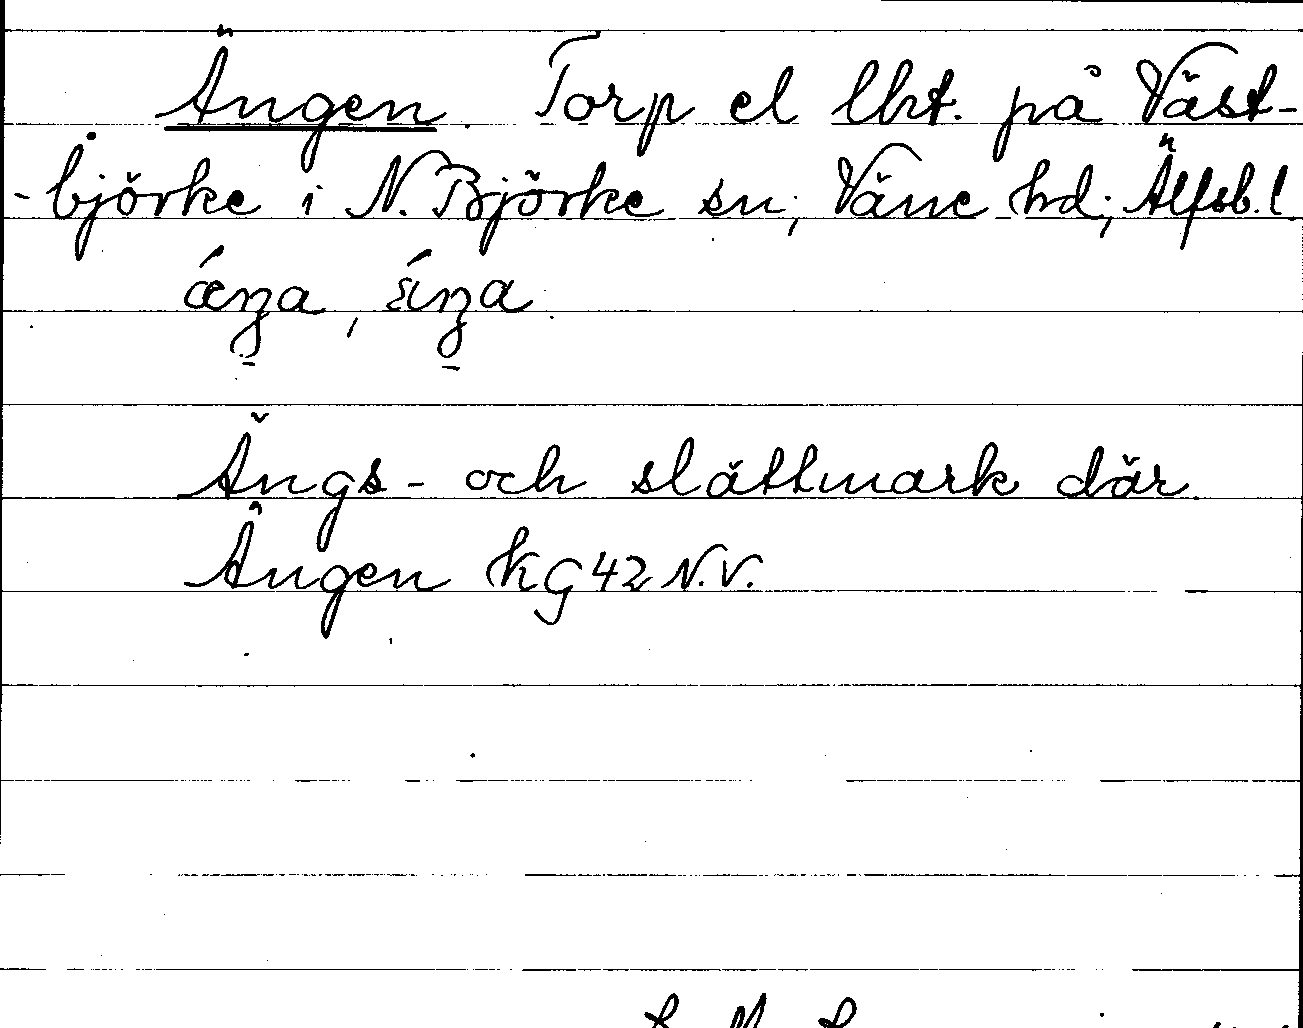 Ängen. Torp el lht. på Väst-
-björke i N. Björke sn; Väne hd; Älfsb. l
Ängs- och slåttmark där.
Ängen KG 42 N.V.